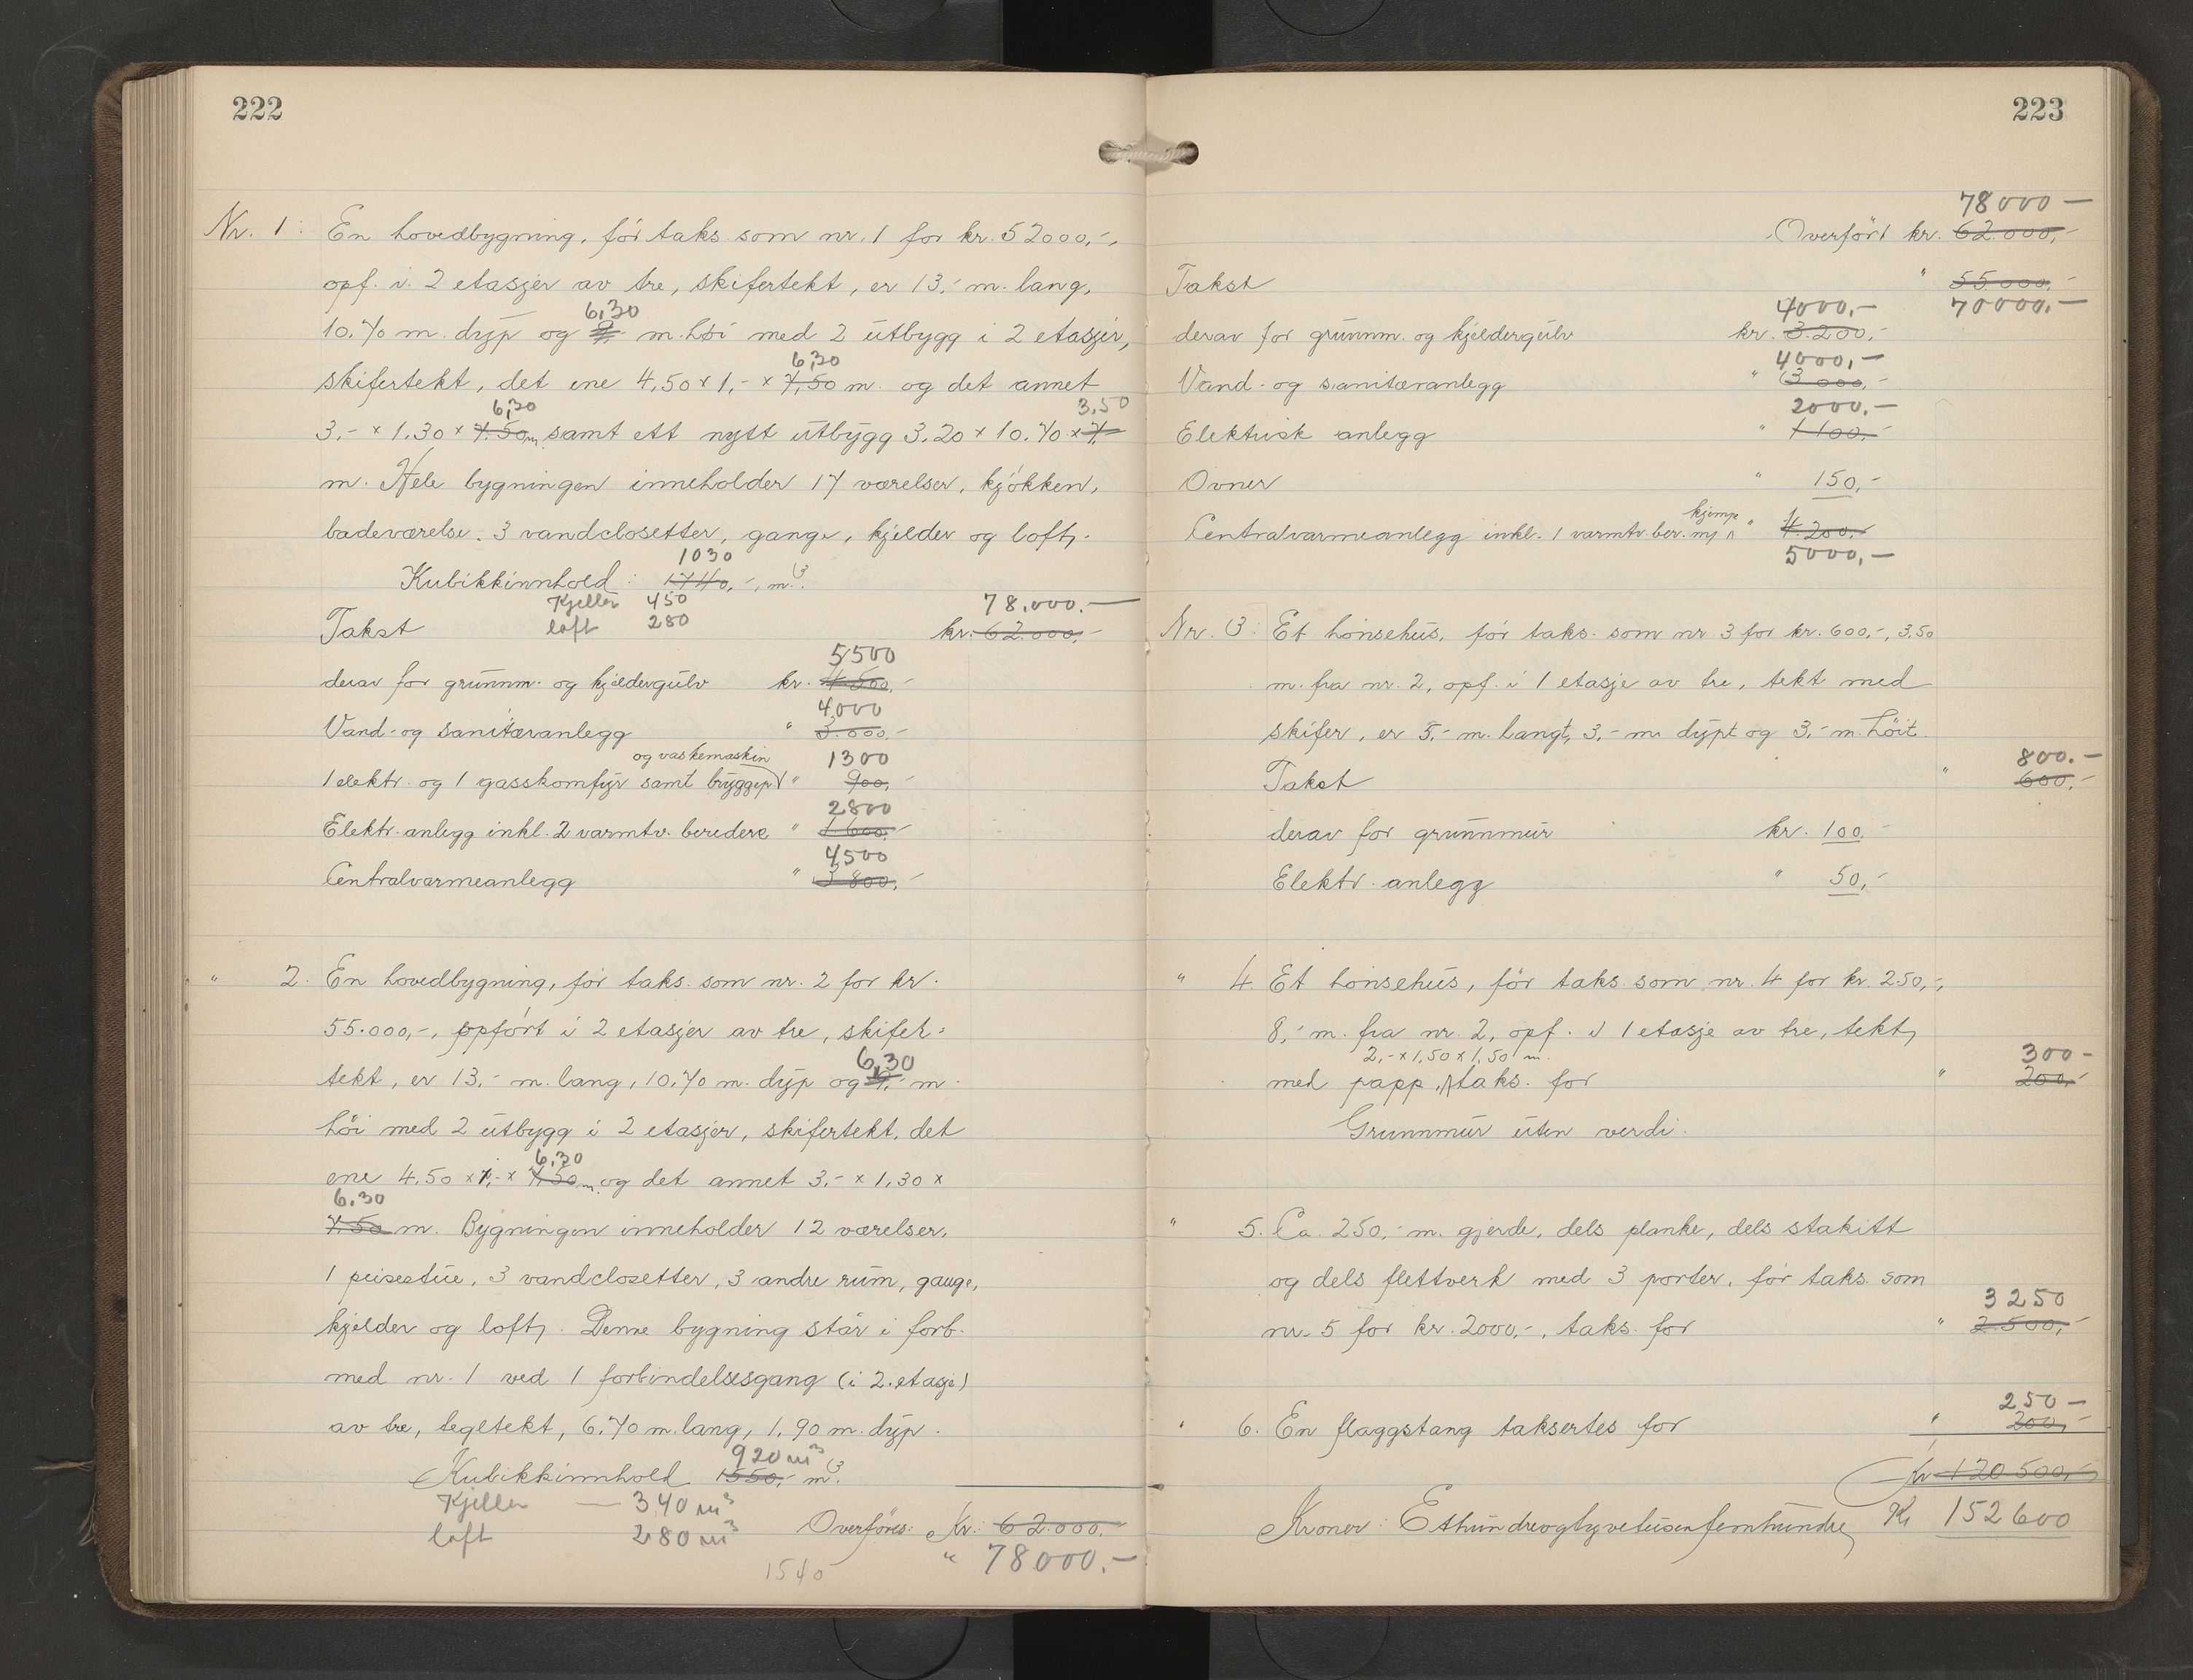 222
Nr. 1: En hovedbygning, før taks. som nr. 1 for kr. 52000,-,
opf. i 2 etasjer av tre, skifertekt, er 13,- m. lang,
6,30
10,70 m. dyp og m. høi med 2 utbygg i 2 etasjer,
6,30
skifertekt, det ene 4,50 x 1,- x 7,50 m. og det annet
6,30 3,50
3,- x 1,30 x 7,50 m. samt ett nytt utbygg 3,20 x 10,70 x 7,-
m. Hele bygningen inneholder 17 værelser, kjøkken,
badeværelse, 3 vandclosetter, gange, kjelder og loft.
1030
Kubikkinnhold: 1740,-, m.3
Kjeller 450
78.000.—
Takst kr. 62.000,-
loft 280
5500
derav for grunnm. og kjeldergulv kr. 4500,-
4000
Vand- og sanitæranlegg " 3.000,-
og vaskemaskin 1300
1 elektr. og 1 gasskomfyr samt bryggep. " 900,-
2800
Elektr. anlegg inkl. 2 varmtv. beredere " 1600,-
4500
Centralvarmeanlegg " 3800,-
" 2. En hovedbygning, før taks. som nr. 2 for kr.
55.000,-, opført i 2 etasjer av tre, skifer=
6,30
tekt, er 13,- m. lang, 10,70 m. dyp og 9,- m.
høi med 2 utbygg i 2 etasjer, skifertekt, det
6,30
ene 4,50 x 1,- x 7,50 m. og det annet 3,- x 1,30 x
6,30
7,50 m. Bygningen inneholder 12 værelser,
1 peisestue, 3 vandclosetter, 3 andre rum, gange,
kjelder og loft. Denne bygning står i forb.
med nr. 1 ved 1 forbindelsesgang (i 2. etasje)
av tre, tegltekt, 6,70 m. lang, 1,90 m. dyp.
920 m3
Kubikkinnhold 1550,- m.3
Kjeller — 340 m3
loft 280 m3
Overføres: Kr. 62.000.
" 78000.—
1540
223
78000 —
Overført kr. 62.000,-
Takst " 55.000,-
4000,- 70000,-
derav for grunnm. og kjeldergulv kr. 3.200,-
4000,-
Vand- og sanitæranlegg " 3000,-
2000,-
Elektrisk anlegg " 1100,-
Ovner " 150,-
kjempe
Centralvarmeanlegg inkl. 1 varmtv. ber. " 4.200,-
5000,-
Nr. 3: Et hønsehus, før taks. som nr. 3 for kr. 600,-, 3,50
m. fra nr. 2, opf. i 1 etasje av tre, tekt med
skifer, er 5,- m. langt, 3,- m. dypt og 3,- m. høit.
800.-
Takst " 600,-
derav for grunnmur kr. 100,-
Elektr. anlegg " 50,-
" 4. Et hønsehus, før taks. som nr. 4 for kr. 250,-,
8,- m. fra nr. 2, opf. i 1 etasje av tre, tekt
2,- x 1,50 x 1,50 m. 300-
med papp, taks. for " 200,-
Grunnmur uten verdi.
" 5. Ca. 250,- m. gjerde, dels planke, dels stakitt
og dels flettverk med 3 porter, før taks. som
3250
nr. 5 for kr. 2000,-, taks. for " 2.500,-
250-
" 6. En flaggstang taksertes for " 200,-
Kr 120 500,-
Kroner: Ethundreogtyvetusenfemhundre Kr 152600